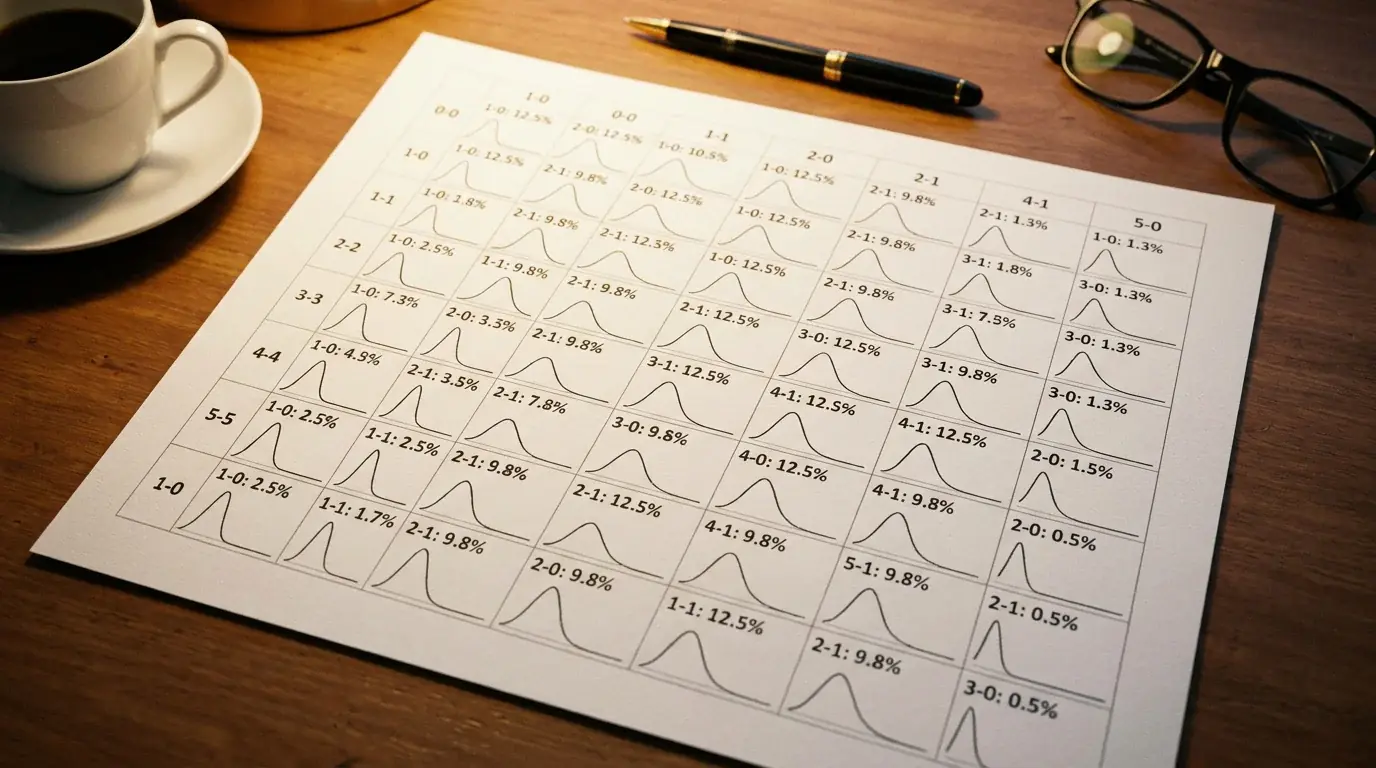 1-0 0-0 1-1 2-0 2-1 4-1 5-0
0-0 1-0: 12.5% 2-0: 12.5% 1-0: 10.5% 1-0: 12.5% 2-1: 9.8% 2-1: 1.3% 1-0: 1.3%
1-0 1-0: 12.5% 2-1: 9.8% 2-0: 12.5% 1-0: 12.5% 2-1: 9.8% 3-1: 1.8% 3-0: 1.3%
1-1 1-0: 1.8% 2-1: 9.8% 2-1: 12.3% 1-0: 12.5% 2-1: 9.8% 3-1: 7.5% 3-0: 1.3%
2-2 1-0: 2.5% 1-1: 9.8% 2-1: 9.8% 2-1: 12.5% 3-0: 12.5% 3-1: 9.8% 3-0: 1.3%
3-3 1-0: 7.3% 2-0: 3.5% 2-1: 9.8% 3-1: 12.5% 4-1: 12.5% 4-1: 12.5% 2-0: 1.5%
4-4 1-0: 4.9% 2-1: 3.5% 2-1: 7.8% 3-0: 9.8% 4-0: 12.5% 4-1: 9.8% 2-0: 0.5%
5-5 1-0: 2.5% 1-1: 2.5% 2-1: 9.8% 2-1: 12.5% 4-1: 9.8% 5-1: 9.8% 2-1: 0.5%
1-0 1-0: 2.5% 1-1: 1.7% 2-1: 9.8% 2-0: 9.8% 1-1: 12.5% 2-1: 9.8% 3-0: 0.5%